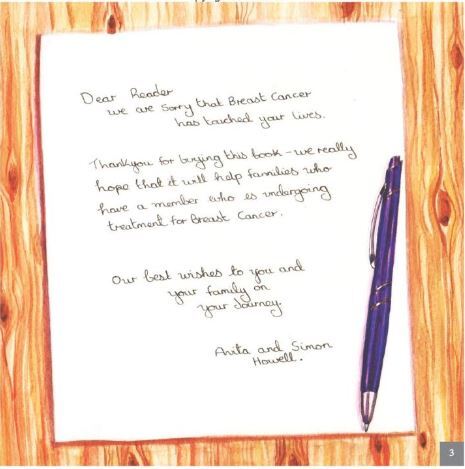 Dear Reader
we are sorry that Breast Cancer
has touched your lives.
Thankyou for buying this book - we really
hope that it will help families who
have a member who is undergoing
treatment for Breast Cancer.
Our best wishes to you and
your family on
your Journey.
Anita and Simon
Howell.
3